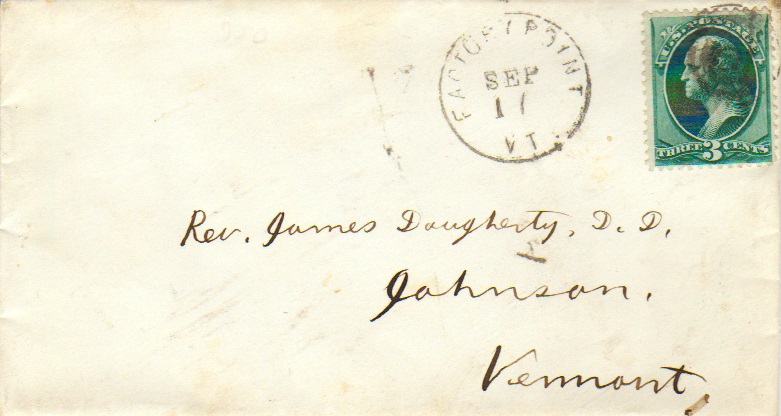 FACTORY POINT
SEP
17
VT.
U.S. POSTAGE
THREE 3 CENTS
Rev. James Dougherty, D. D.
Johnson.
Vermont